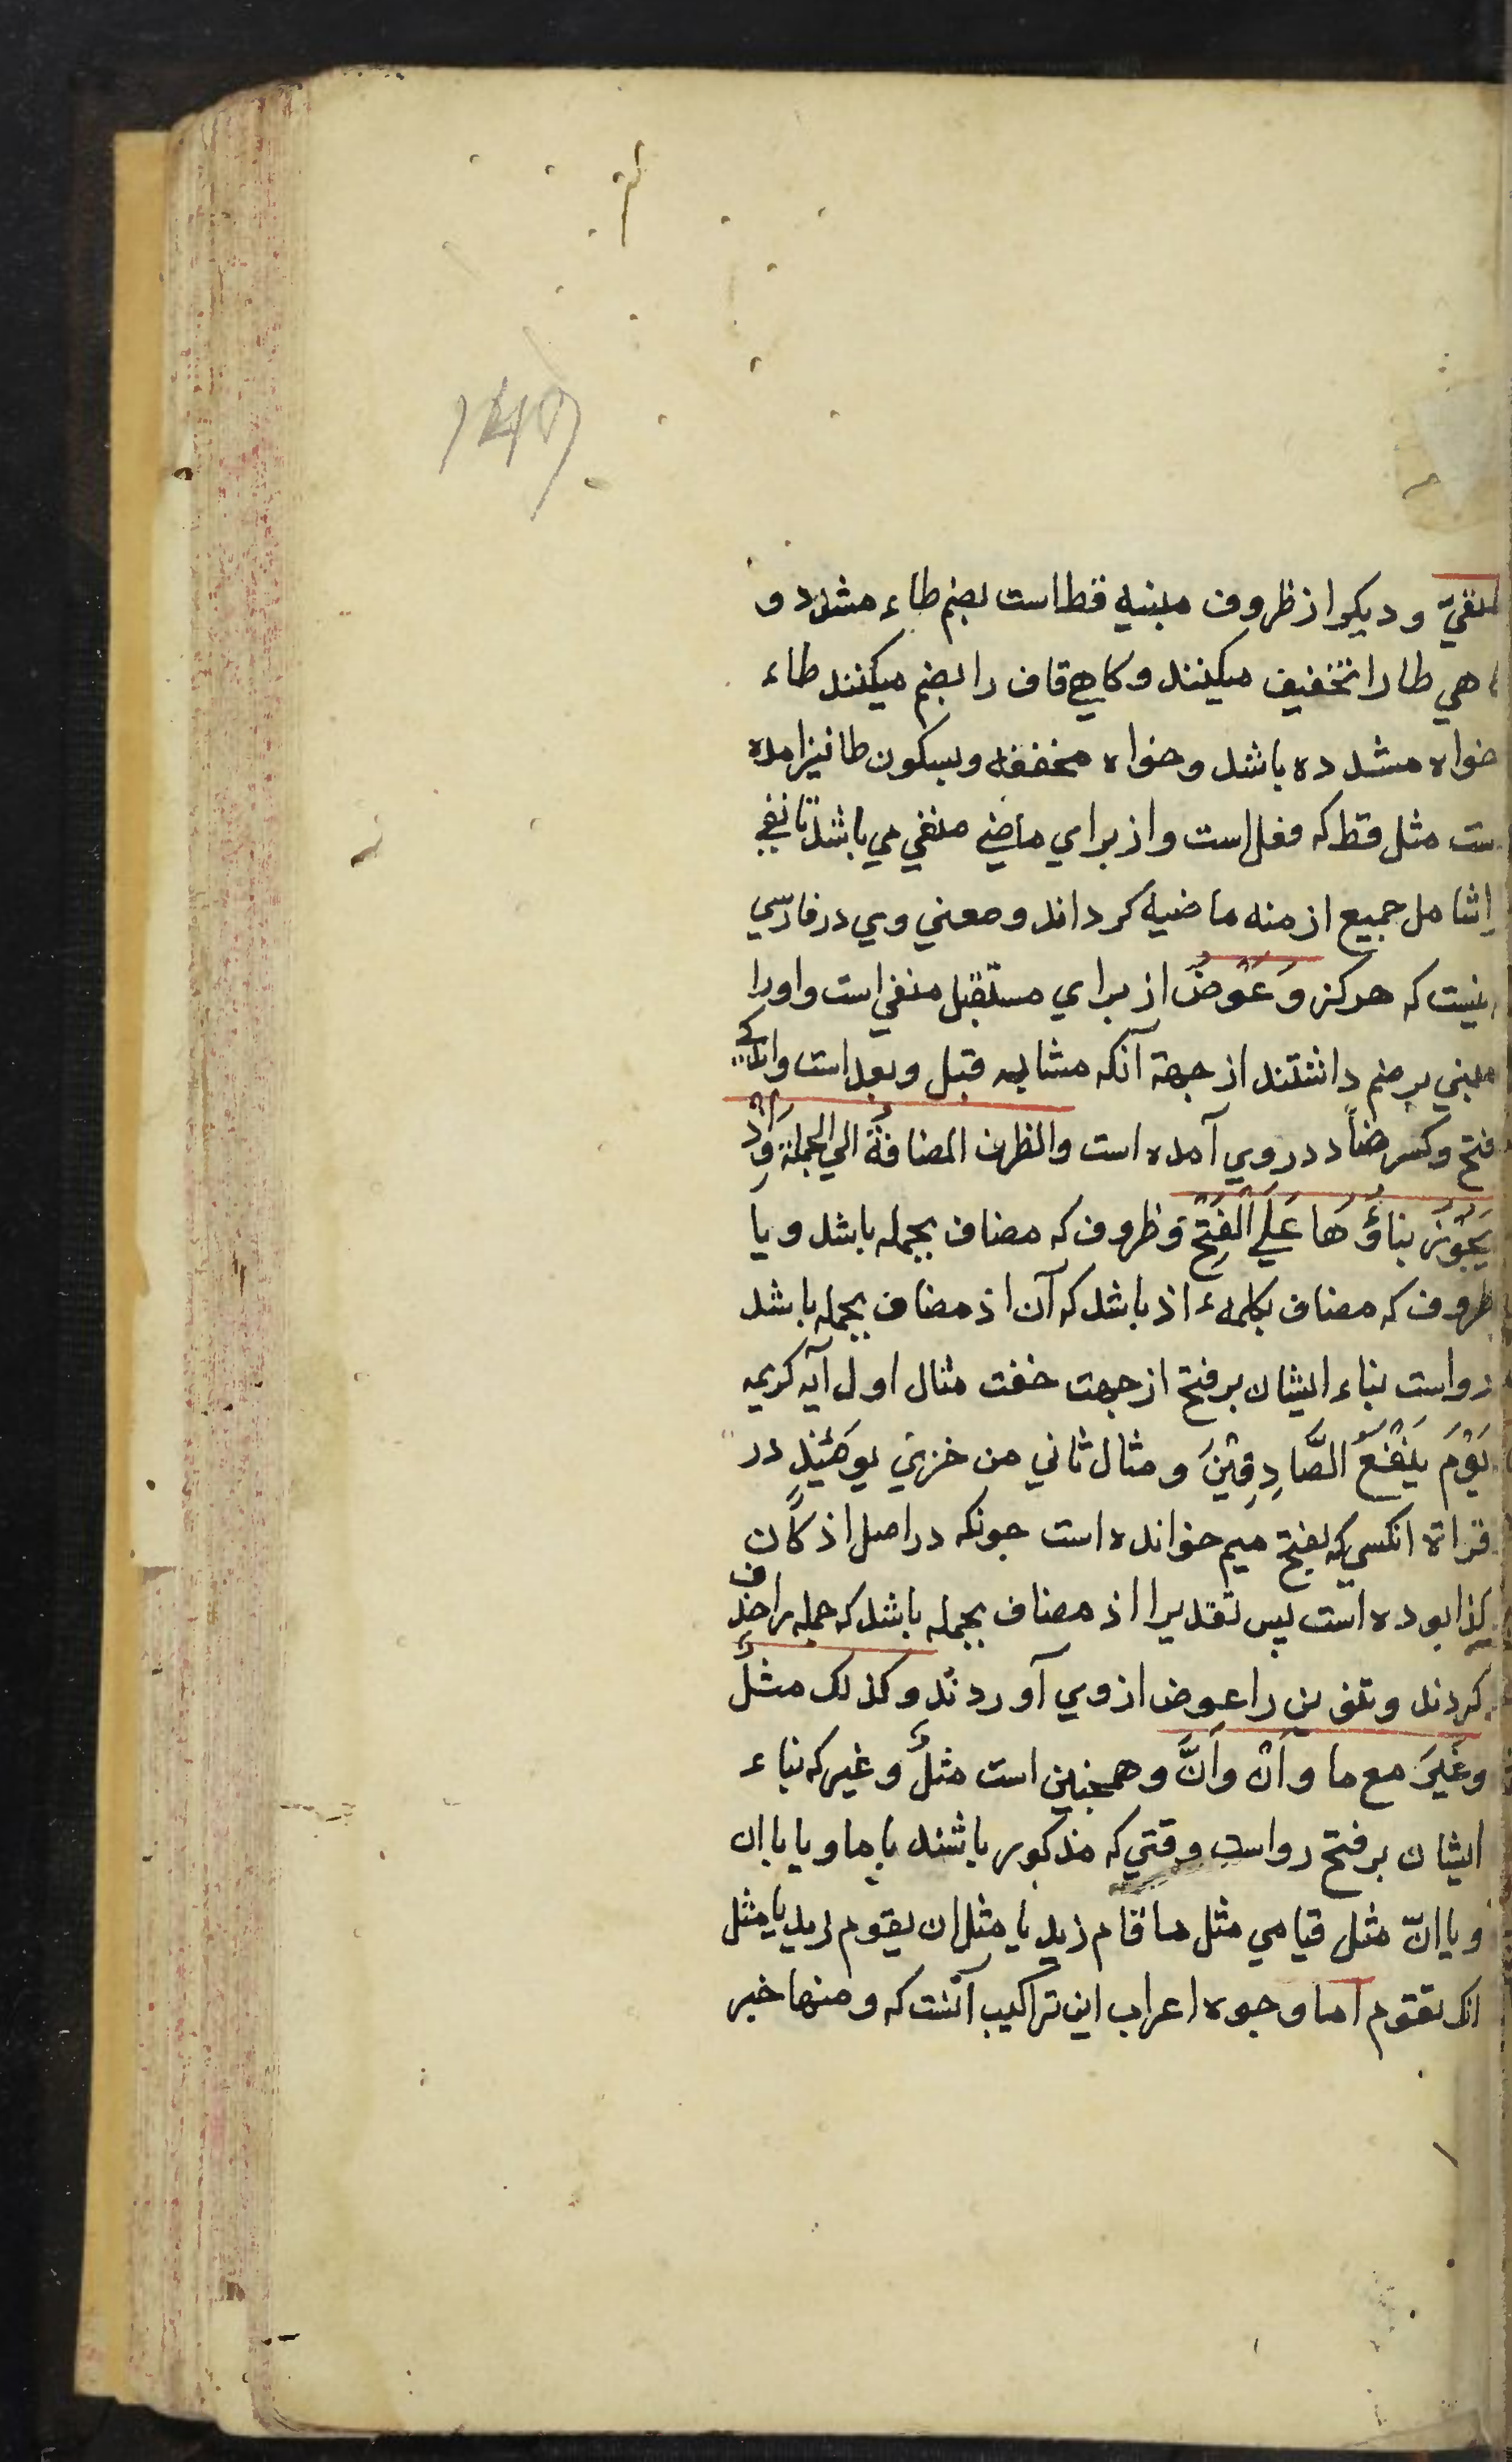 147
و دیکر از ظروف مبنیه قط است بضم طاء مشدد و
هي طا را تخفیف میکنند و کاهي قاف را بضم میکنند طاء
خواه مشدده باشد و خواه مخففه و بسکون طا نیز امده
ست مثل قط که فعل است و از براي ماضي منفي مي باشد تا نفي
را شامل جمیع ازمنه ماضیه کرداند و معني وي در فارسي
اینست که هرکز وَعَوْضُ از براي مستقبل منفي است و اورا
مبني بر ضم داشتند از جهة آنکه مشابه قبل و بعد است و
فتح و کسر ضاد در وي آمده است والظرف المضافةُ الي الجملةِ وَاِذْ
یَجُوْزُ بناؤُهَا عَلَي الْفَتْحِ و ظروف که مضاف بجمله باشد و یا
ظروف که مضاف بکلمهء اذ باشد که آن اذ مضاف بجمله باشد
رواست بناء ایشان بر فتح از جهت خفت مثال اول آیه کریمه
یَوْمَ یَنْفَعُ الصَّادِقِیْنَ و مثال ثاني من خزي یومَئِذٍ در
قراة انکسي که بفتح میم خوانده است جونکه در اصل اذ کان
کذا بوده است پس تقدیرا اذ مضاف بجمله باشد که جمله را حذف
کردند و تنوین را عوض از وي آوردند و کذلک مثلُ
وغَیرَ مع ما وأنْ وأنَّ و همجنین است مثلُ و غیر که بناء
ایشان بر فتح رواست وقتي که مذکور باشند با ما و یا با ان
و یا انّ مثل قیامي مثل ما قام زید یا مثل ان یقوم زید یا مثل
انک تقوم اما وجوه اعراب این تراکیب آنست که و منها خبر